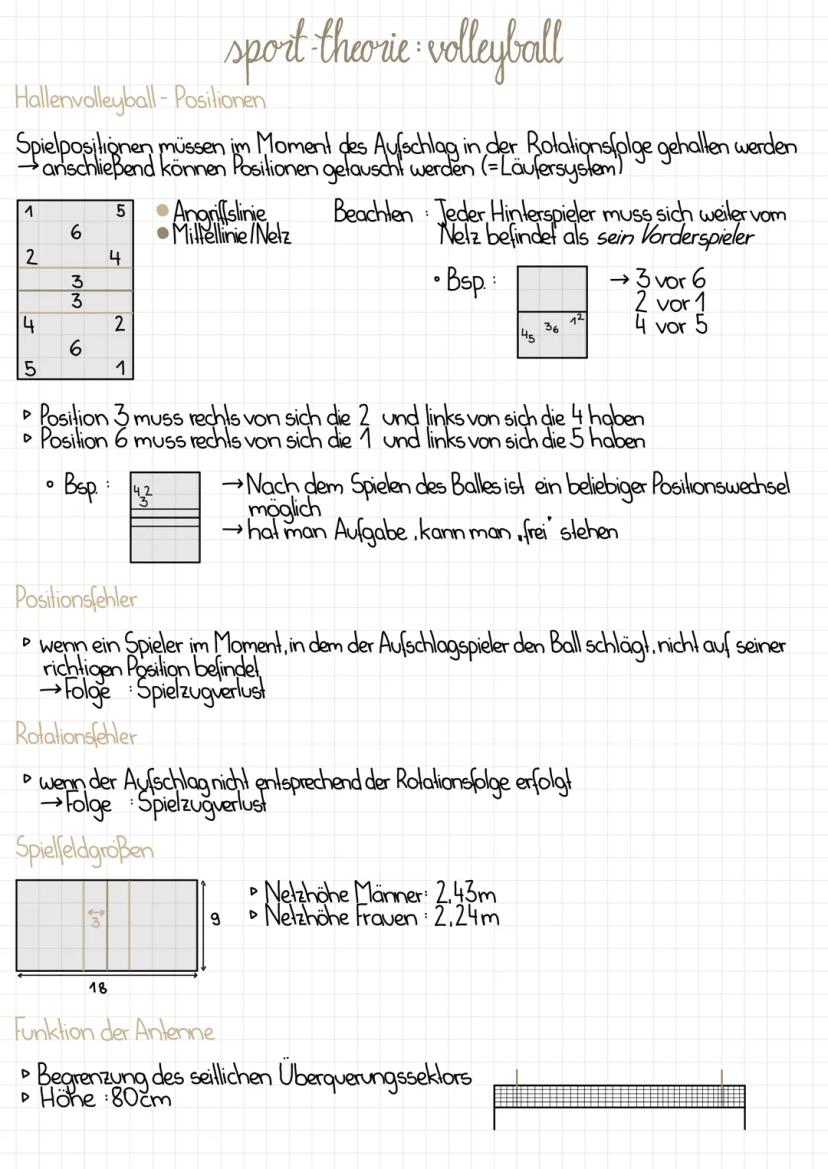 sport-theorie: volleyball
Hallenvolleyball - Positionen
Spielpositionen müssen im Moment des Aufschlag in der Rotationsfolge gehalten werden
→ anschließend können Positionen getauscht werden (=Läufersystem)
1 5
6
2 4
3
3
4 2
6
5 1
Angriffslinie
Mittellinie/Netz
Beachten: Jeder Hinterspieler muss sich weiter vom
Netz befindet als sein Vorderspieler
• Bsp.:
45 36 12
→ 3 vor 6
2 vor 1
4 vor 5
▹ Position 3 muss rechts von sich die 2 und links von sich die 4 haben
▹ Position 6 muss rechts von sich die 1 und links von sich die 5 haben
• Bsp.:
4 2
3
→ Nach dem Spielen des Balles ist ein beliebiger Positionswechsel
möglich
→ hat man Aufgabe, kann man „frei" stehen
Positionsfehler
▹ wenn ein Spieler im Moment, in dem der Aufschlagspieler den Ball schlägt, nicht auf seiner
richtigen Position befindet
→ Folge: Spielzugverlust
Rotationsfehler
▹ wenn der Aufschlag nicht entsprechend der Rotationsfolge erfolgt
→ Folge: Spielzugverlust
Spielfeldgrößen
3
9
18
▹ Netzhöhe Männer: 2,43m
▹ Netzhöhe Frauen: 2,24m
Funktion der Antenne
▹ Begrenzung des seitlichen Überquerungssektors
▹ Höhe: 80cm